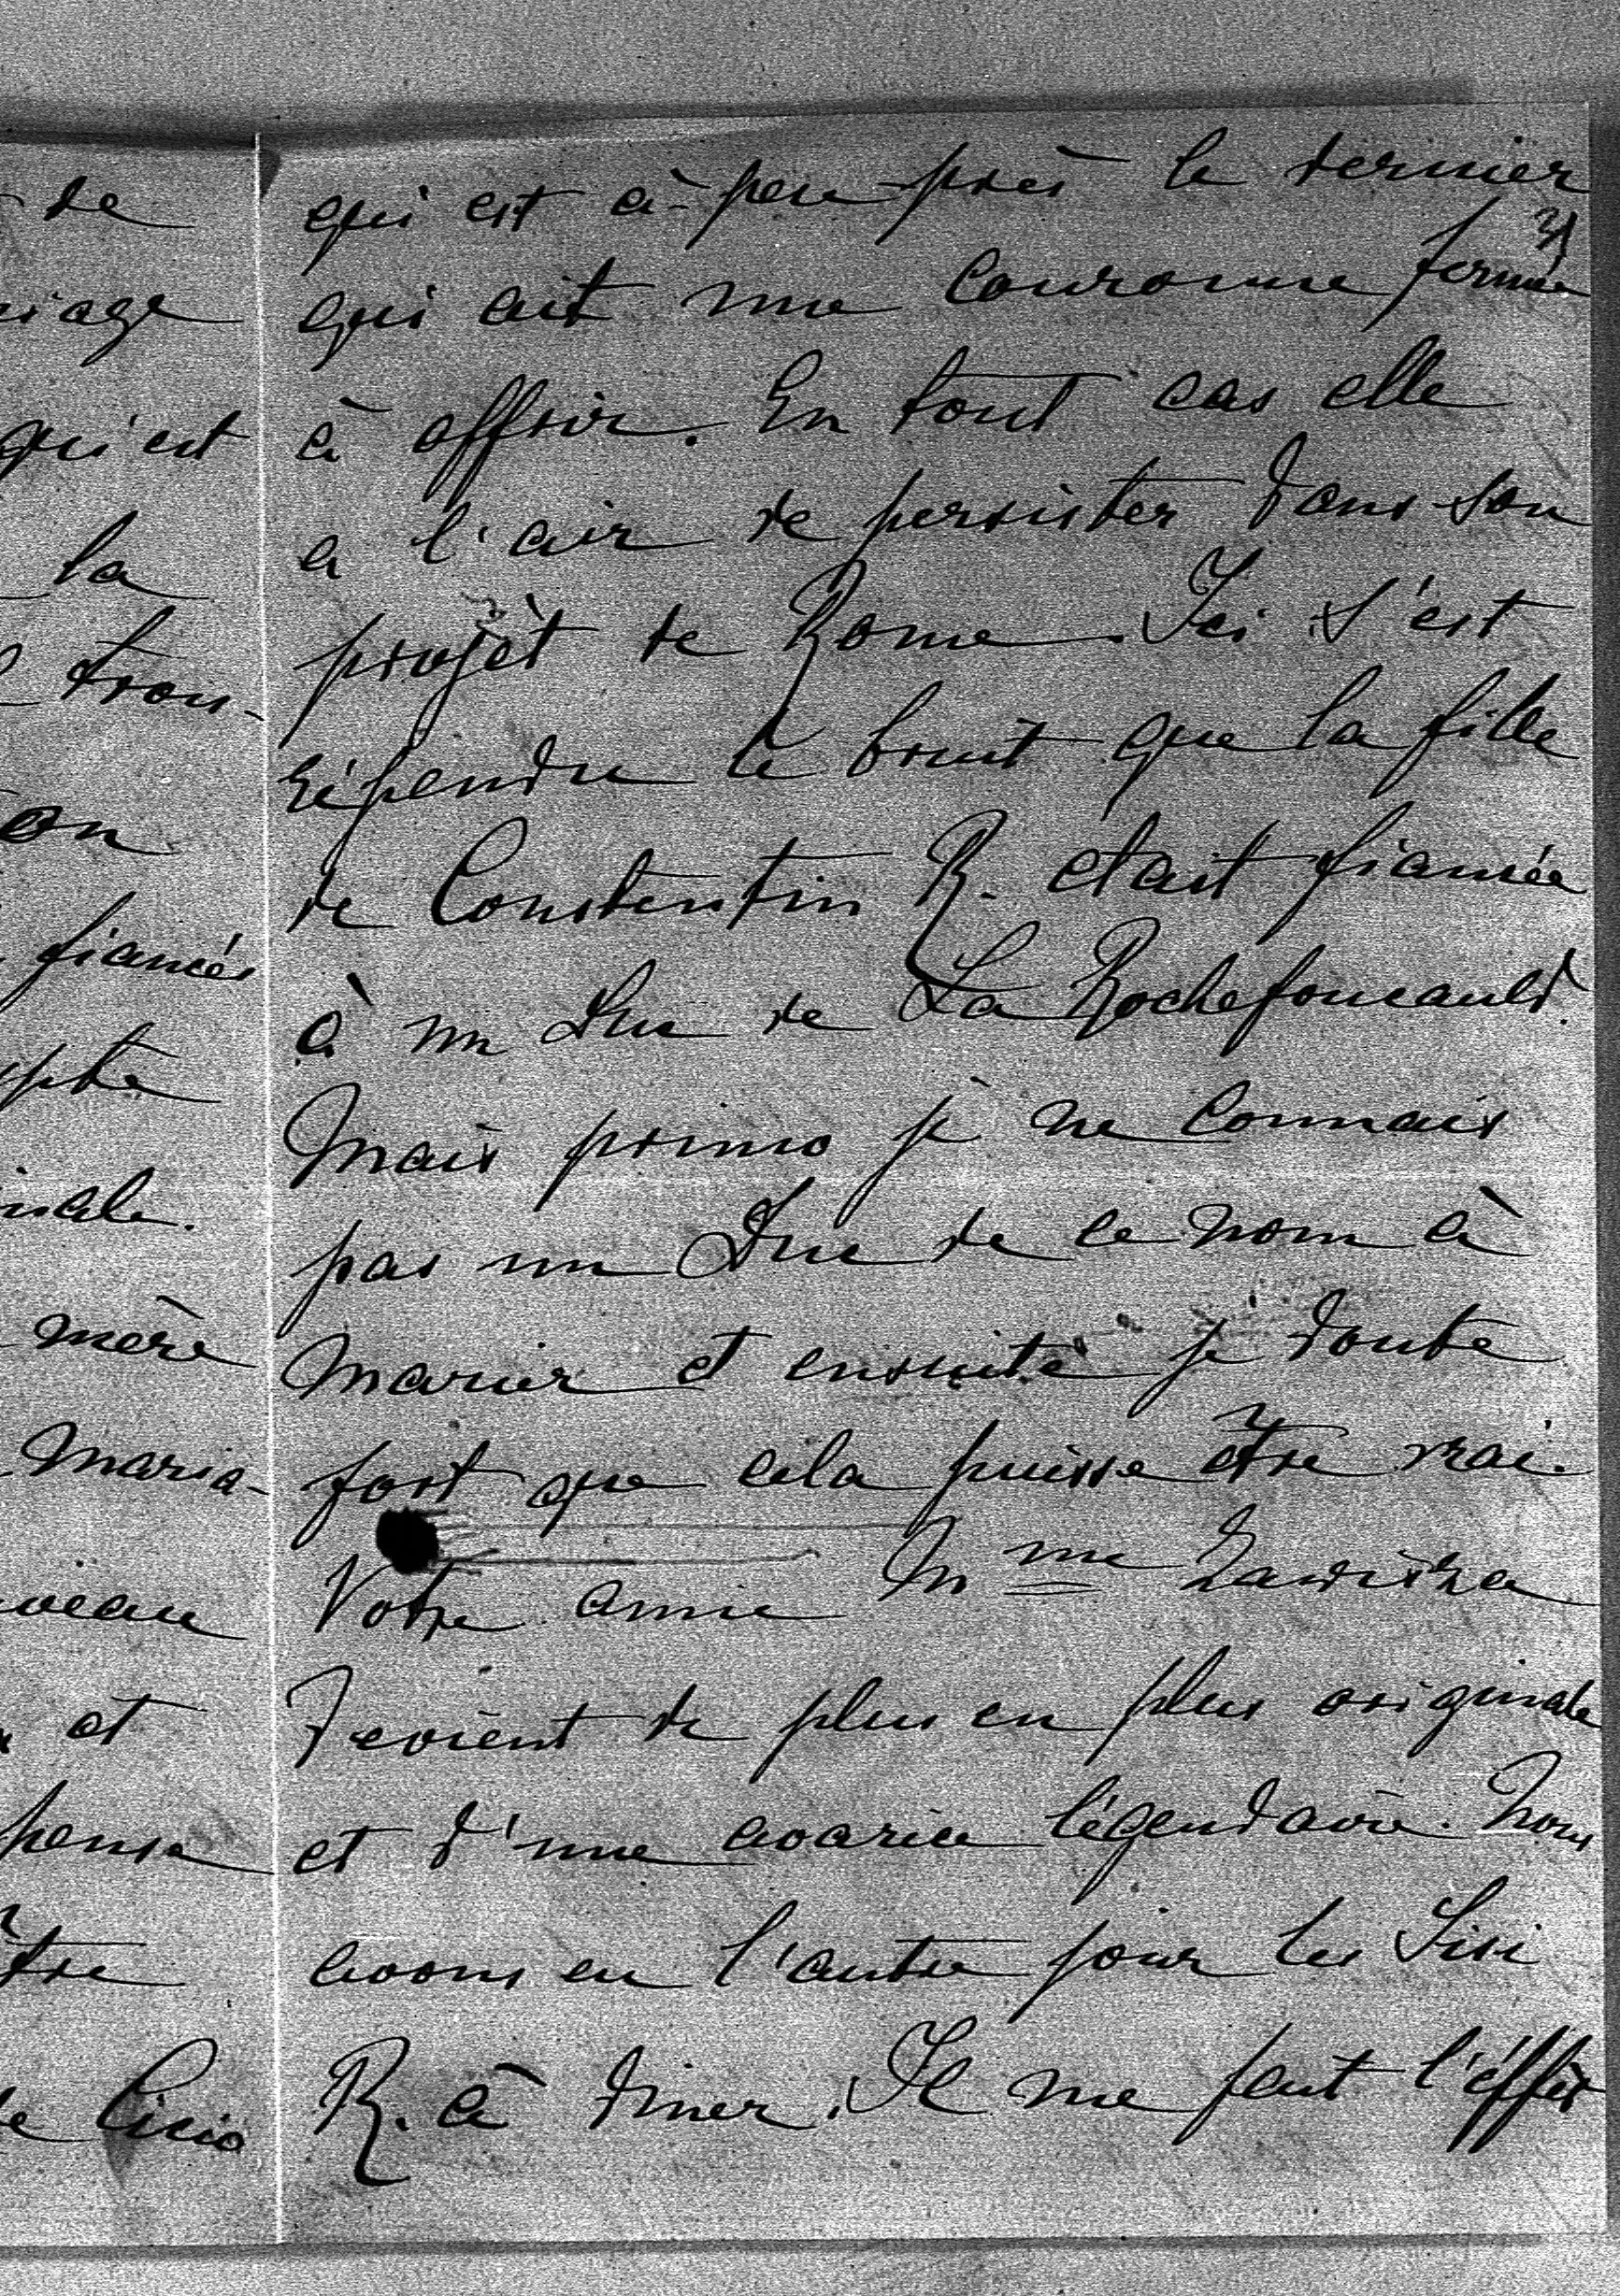 de
iage
qui est
la
trou-
on
fiancés
pte
nale.
mère
maria-
veau
et
pense
tre
de Cicio
31
qui est à-peu-près le dernier
qui ait une couronne fermée
à offrir. En tout cas elle
a l'air de persister dans son
projèt de Rome. Ici s'est
répendu le bruit que la fille
de Constentin R. était fiancée
à un Duc de La Rochefoucauld.
Mais primo je ne connais
pas un Duc de ce nom à
marier et ensuite je doute
fort que cela puisse être vrai.
Votre amie Mme
devient de plus en plus originale
et d'une avarice légendaire. Nous
avons eu l'autre jour les Sisi
R. à diner. Il me fait l'éffèt